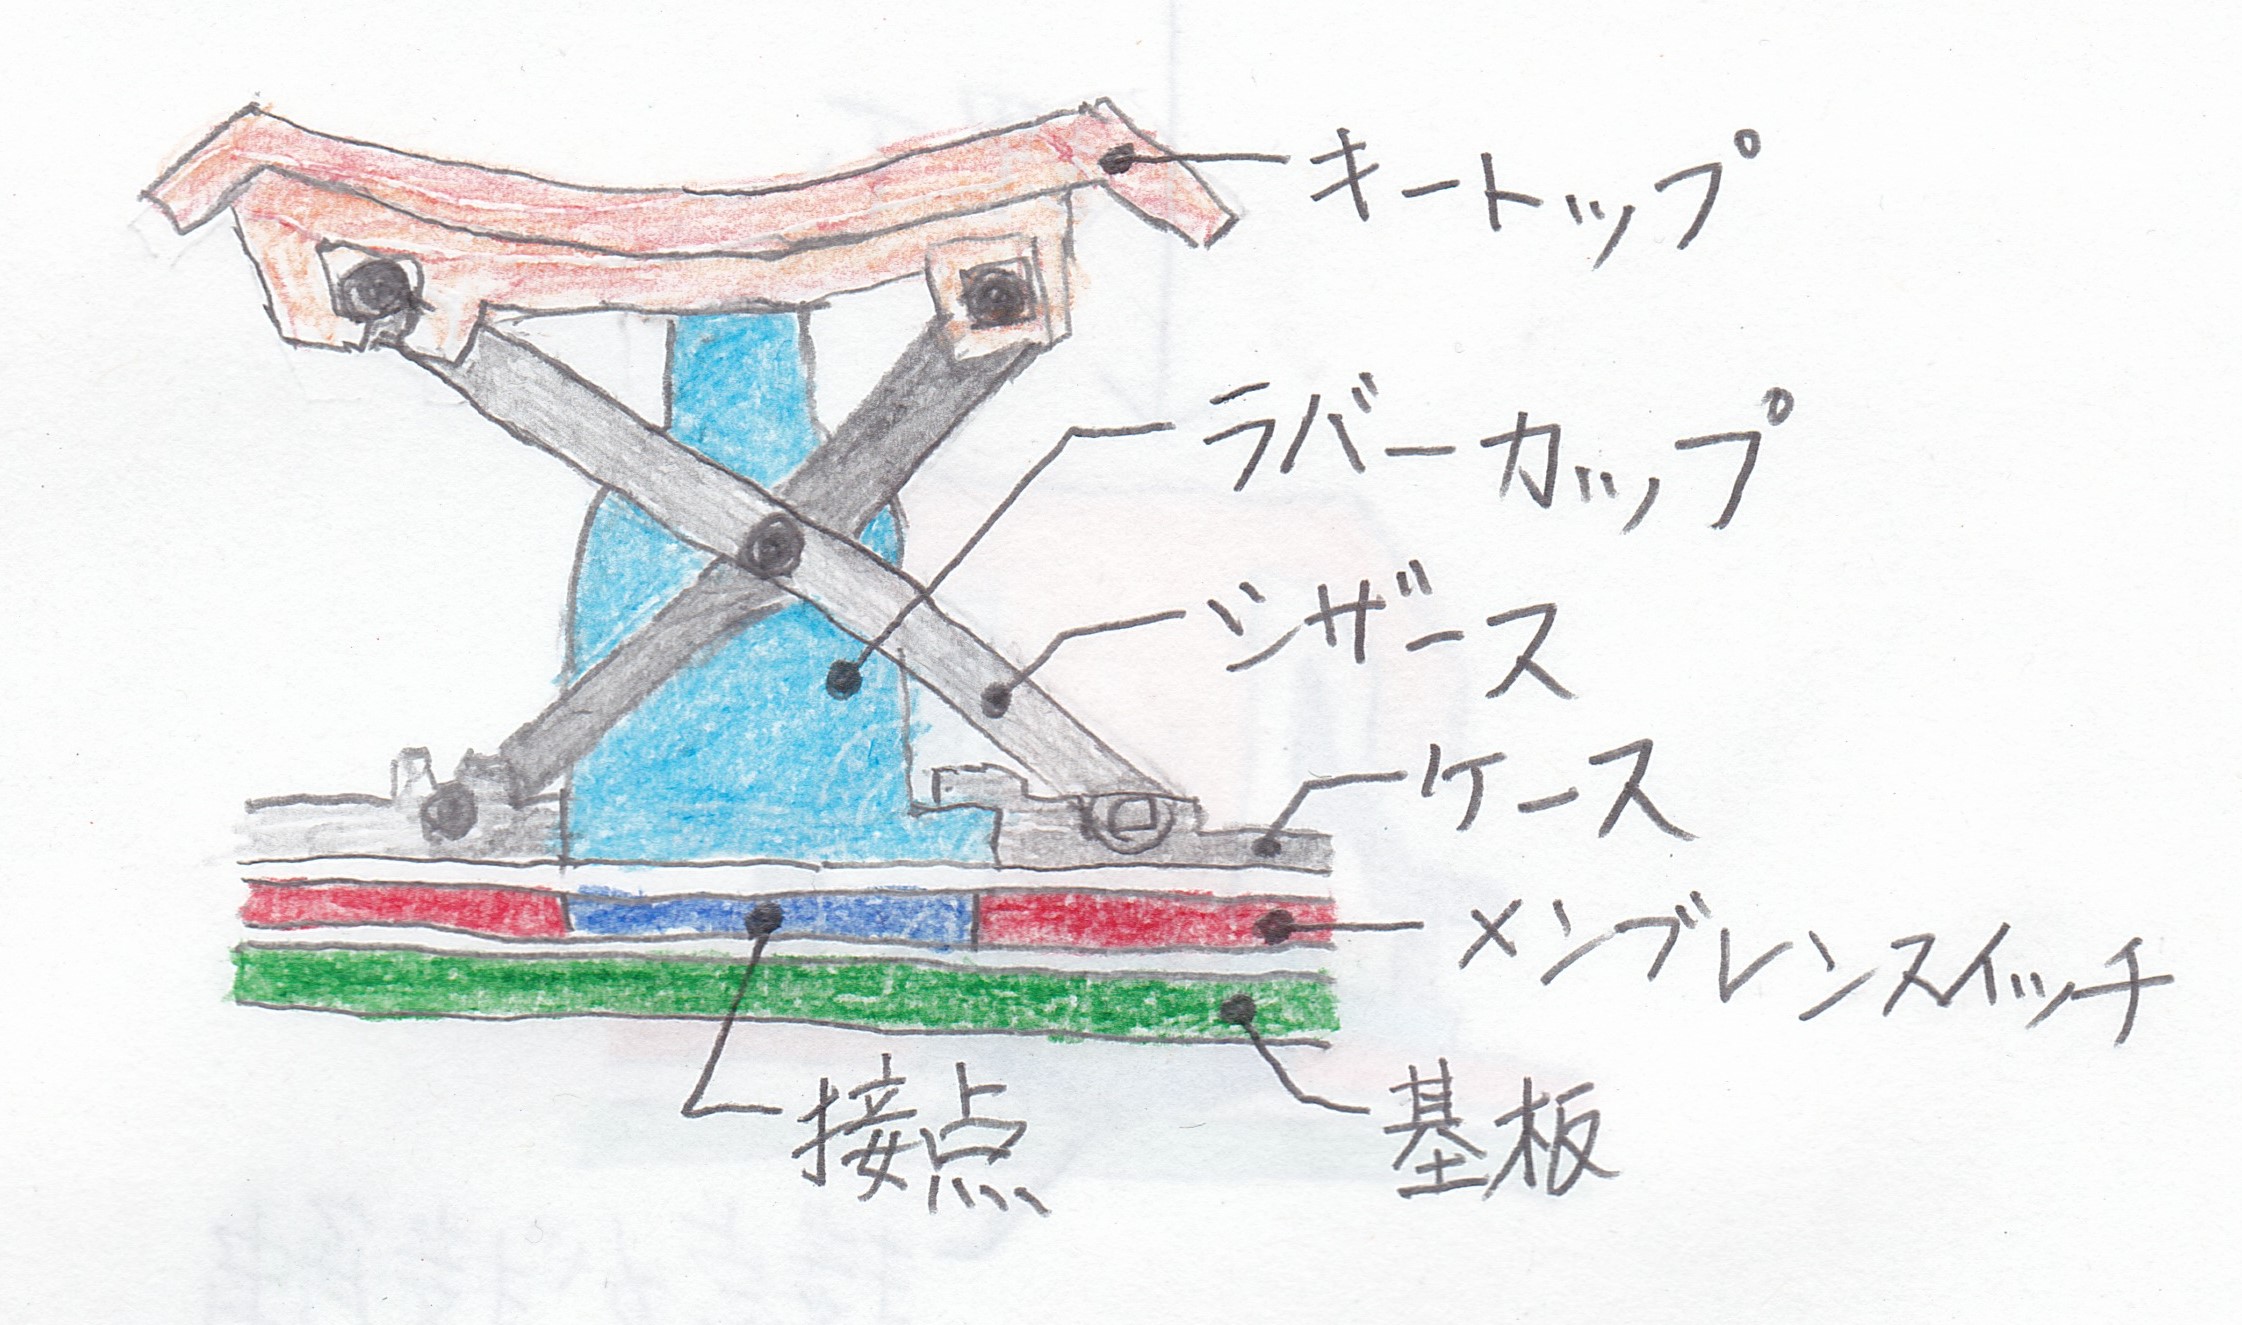 キートップ
ラバーカップ
シザース
ケース
メンブレンスイッチ
接点
基板